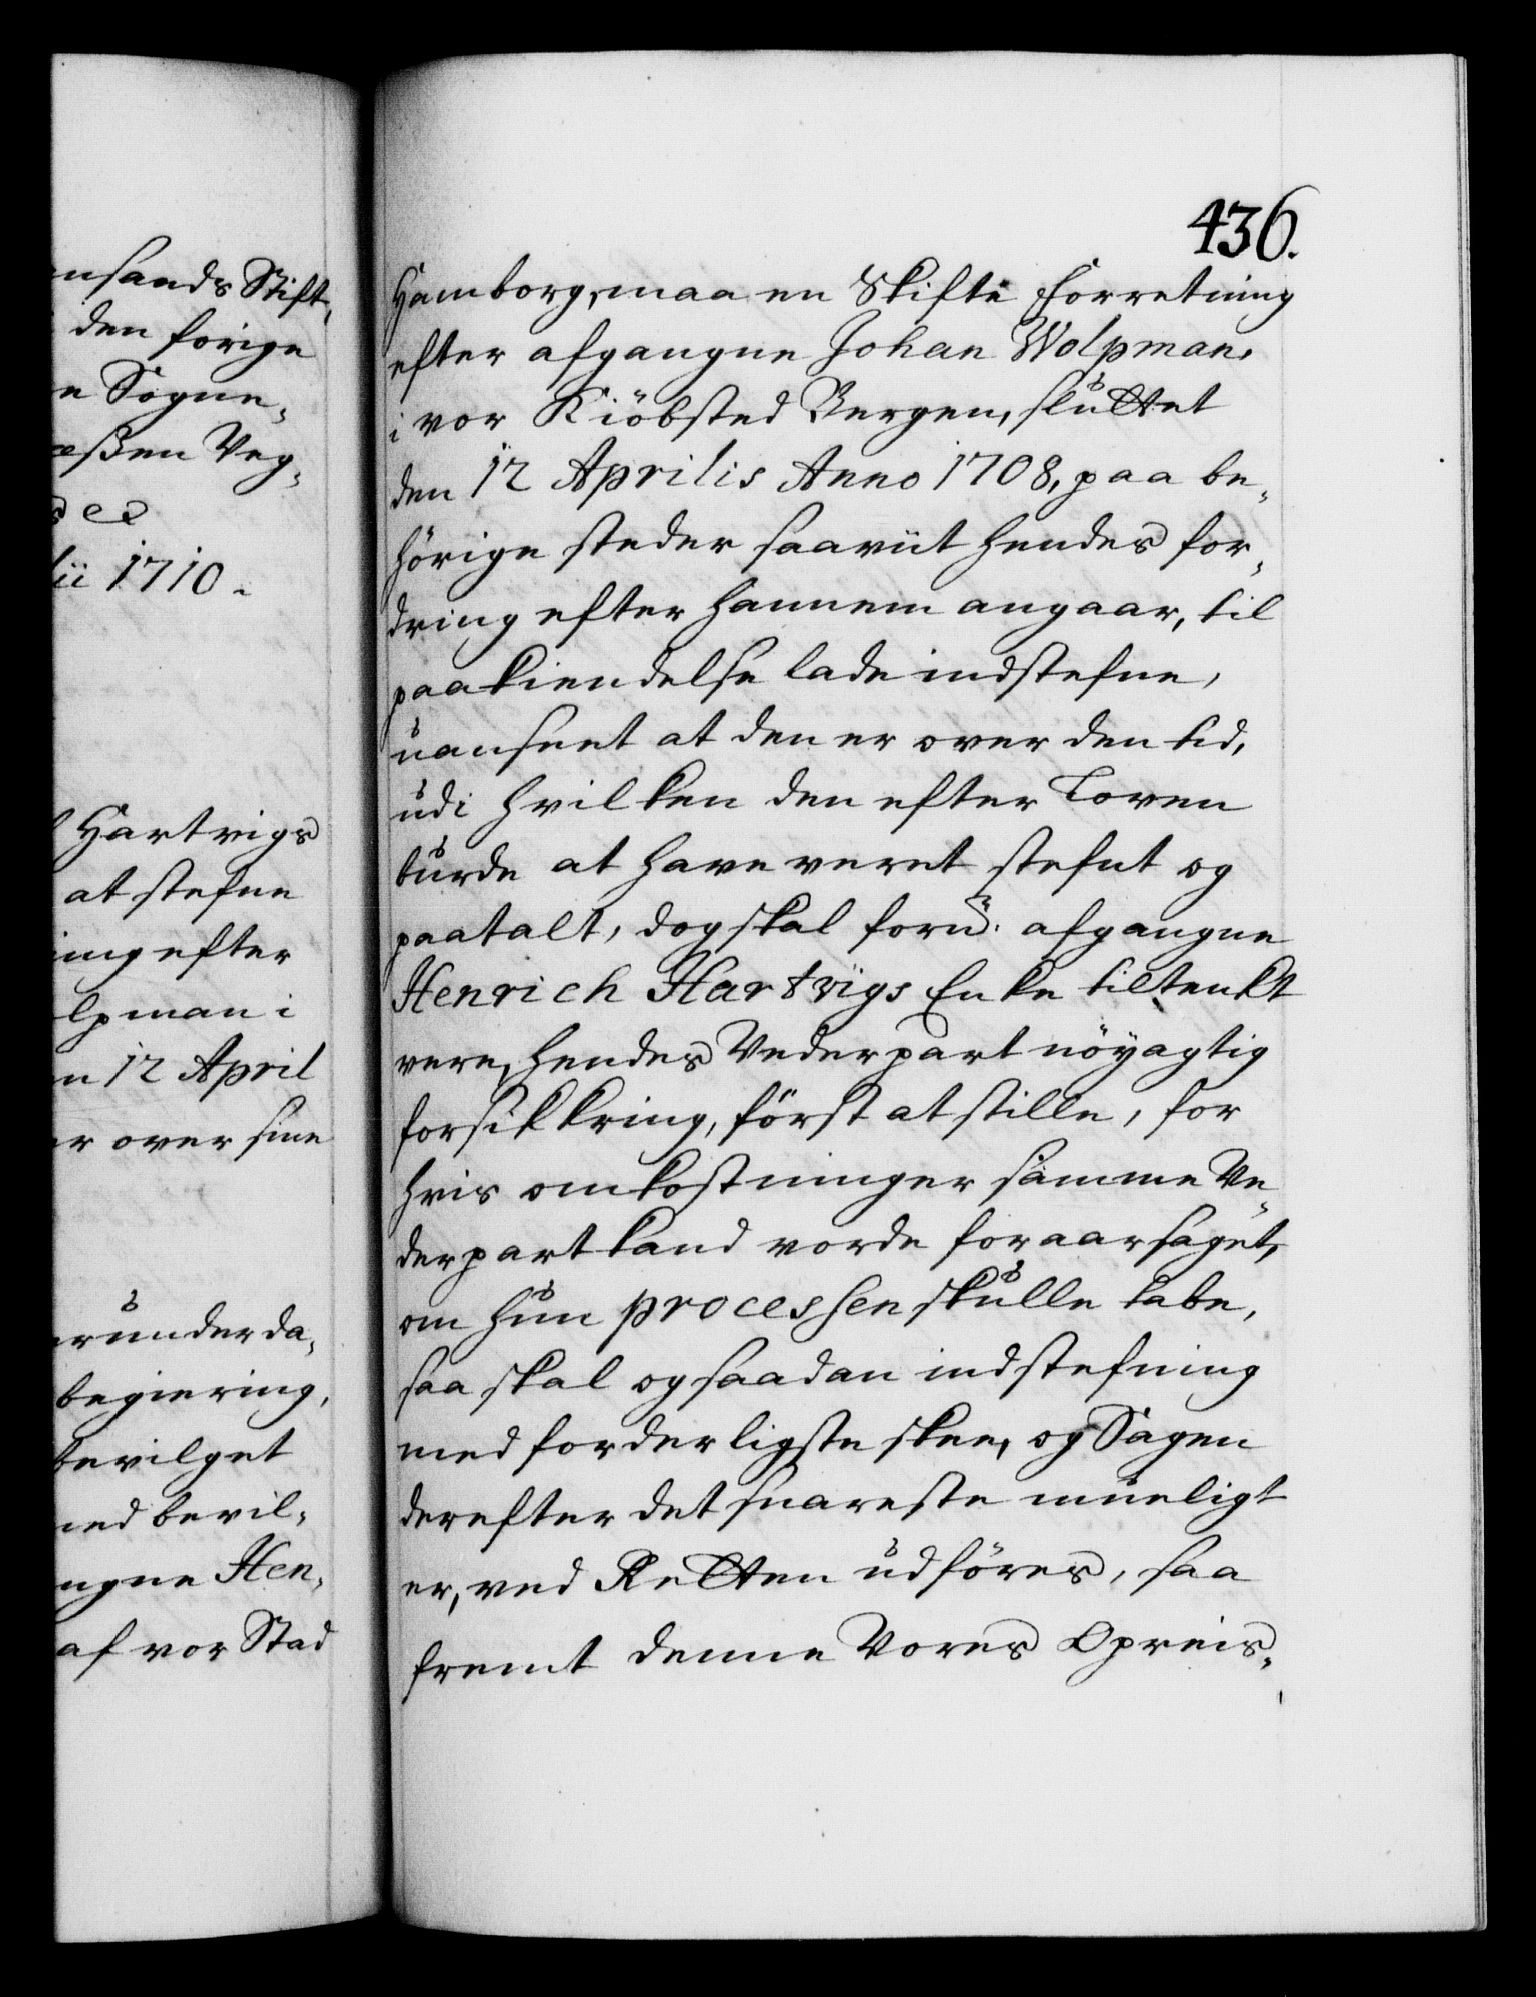 ensands Stift,
den forige
e Sogne,
essen Veg,
ii 1710.
Hartvigs
at stefne
ing efter
lpman i
n 12 April
er over sine
erunderda,
begiering,
bevilget
ned bevil,
ngne Hen,
af vor Stad
436.
Hamborg, maa en Skifte forretning
efter afgangne Johan Wolpman,
i vor Kiöbsted Bergen, sluttet
den 12 Aprilis Anno 1708, paa be,
hörige steder saaviit hendes for,
dring efter hannem angaar, til
paakiendelse lade indstefne,
uanseet at den er over den tid,
udi hvilken den efter Loven
burde at have veret stefnt og
paatalt, dog skal forne. afgangne
Henrich Hartvigs Enke tiltenkt
vere, hendes Vederpart nöyagtig
forsikkring, först at stille, for
hvis omkostninger samme Ve,
derpart kand vorde foraarsaget,
om hun processen skulle tabe,
saa skal og saadan indstefning
med forderligste skee, og Sagen
derefter det snareste mueligt
er, ved Retten udföres, saa
fremt denne Vores Opreis,